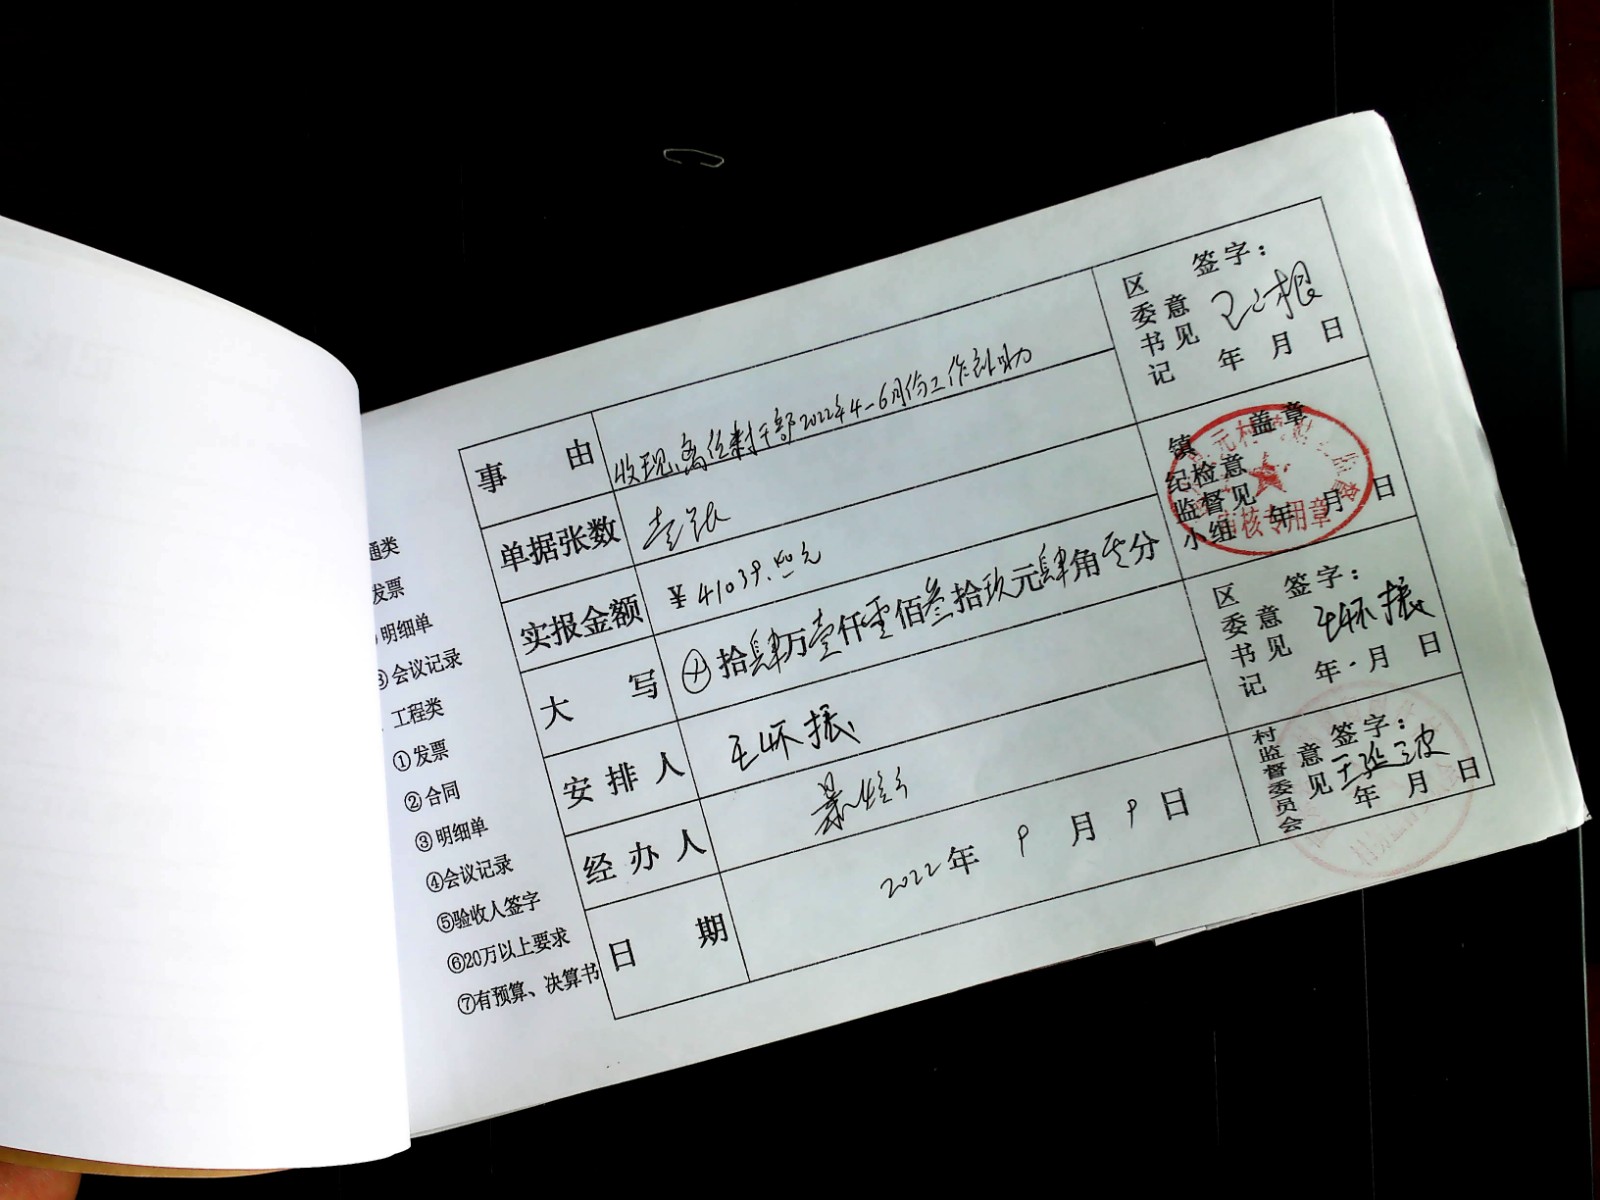 通类
发票
明细单
③会议记录
工程类
①发票
②合同
③明细单
④会议记录
⑤验收人签字
⑥20万以上要求
⑦有预算、决算书
事由 收现离任村干部2022年4-6月份工作补助
单据张数 壹张
实报金额 ¥41039.40元
大写 ⊗拾肆万壹仟零佰叁拾玖元肆角零分
安排人 王怀振
经办人
日期 2022年9月9日
区委书记意见 签字：
年 月 日
镇纪检监督小组意见 盖章
年 月 日
审核专用章
区委书记意见 签字：王怀振
年 月 日
村监督委员会意见 签字：
年 月 日